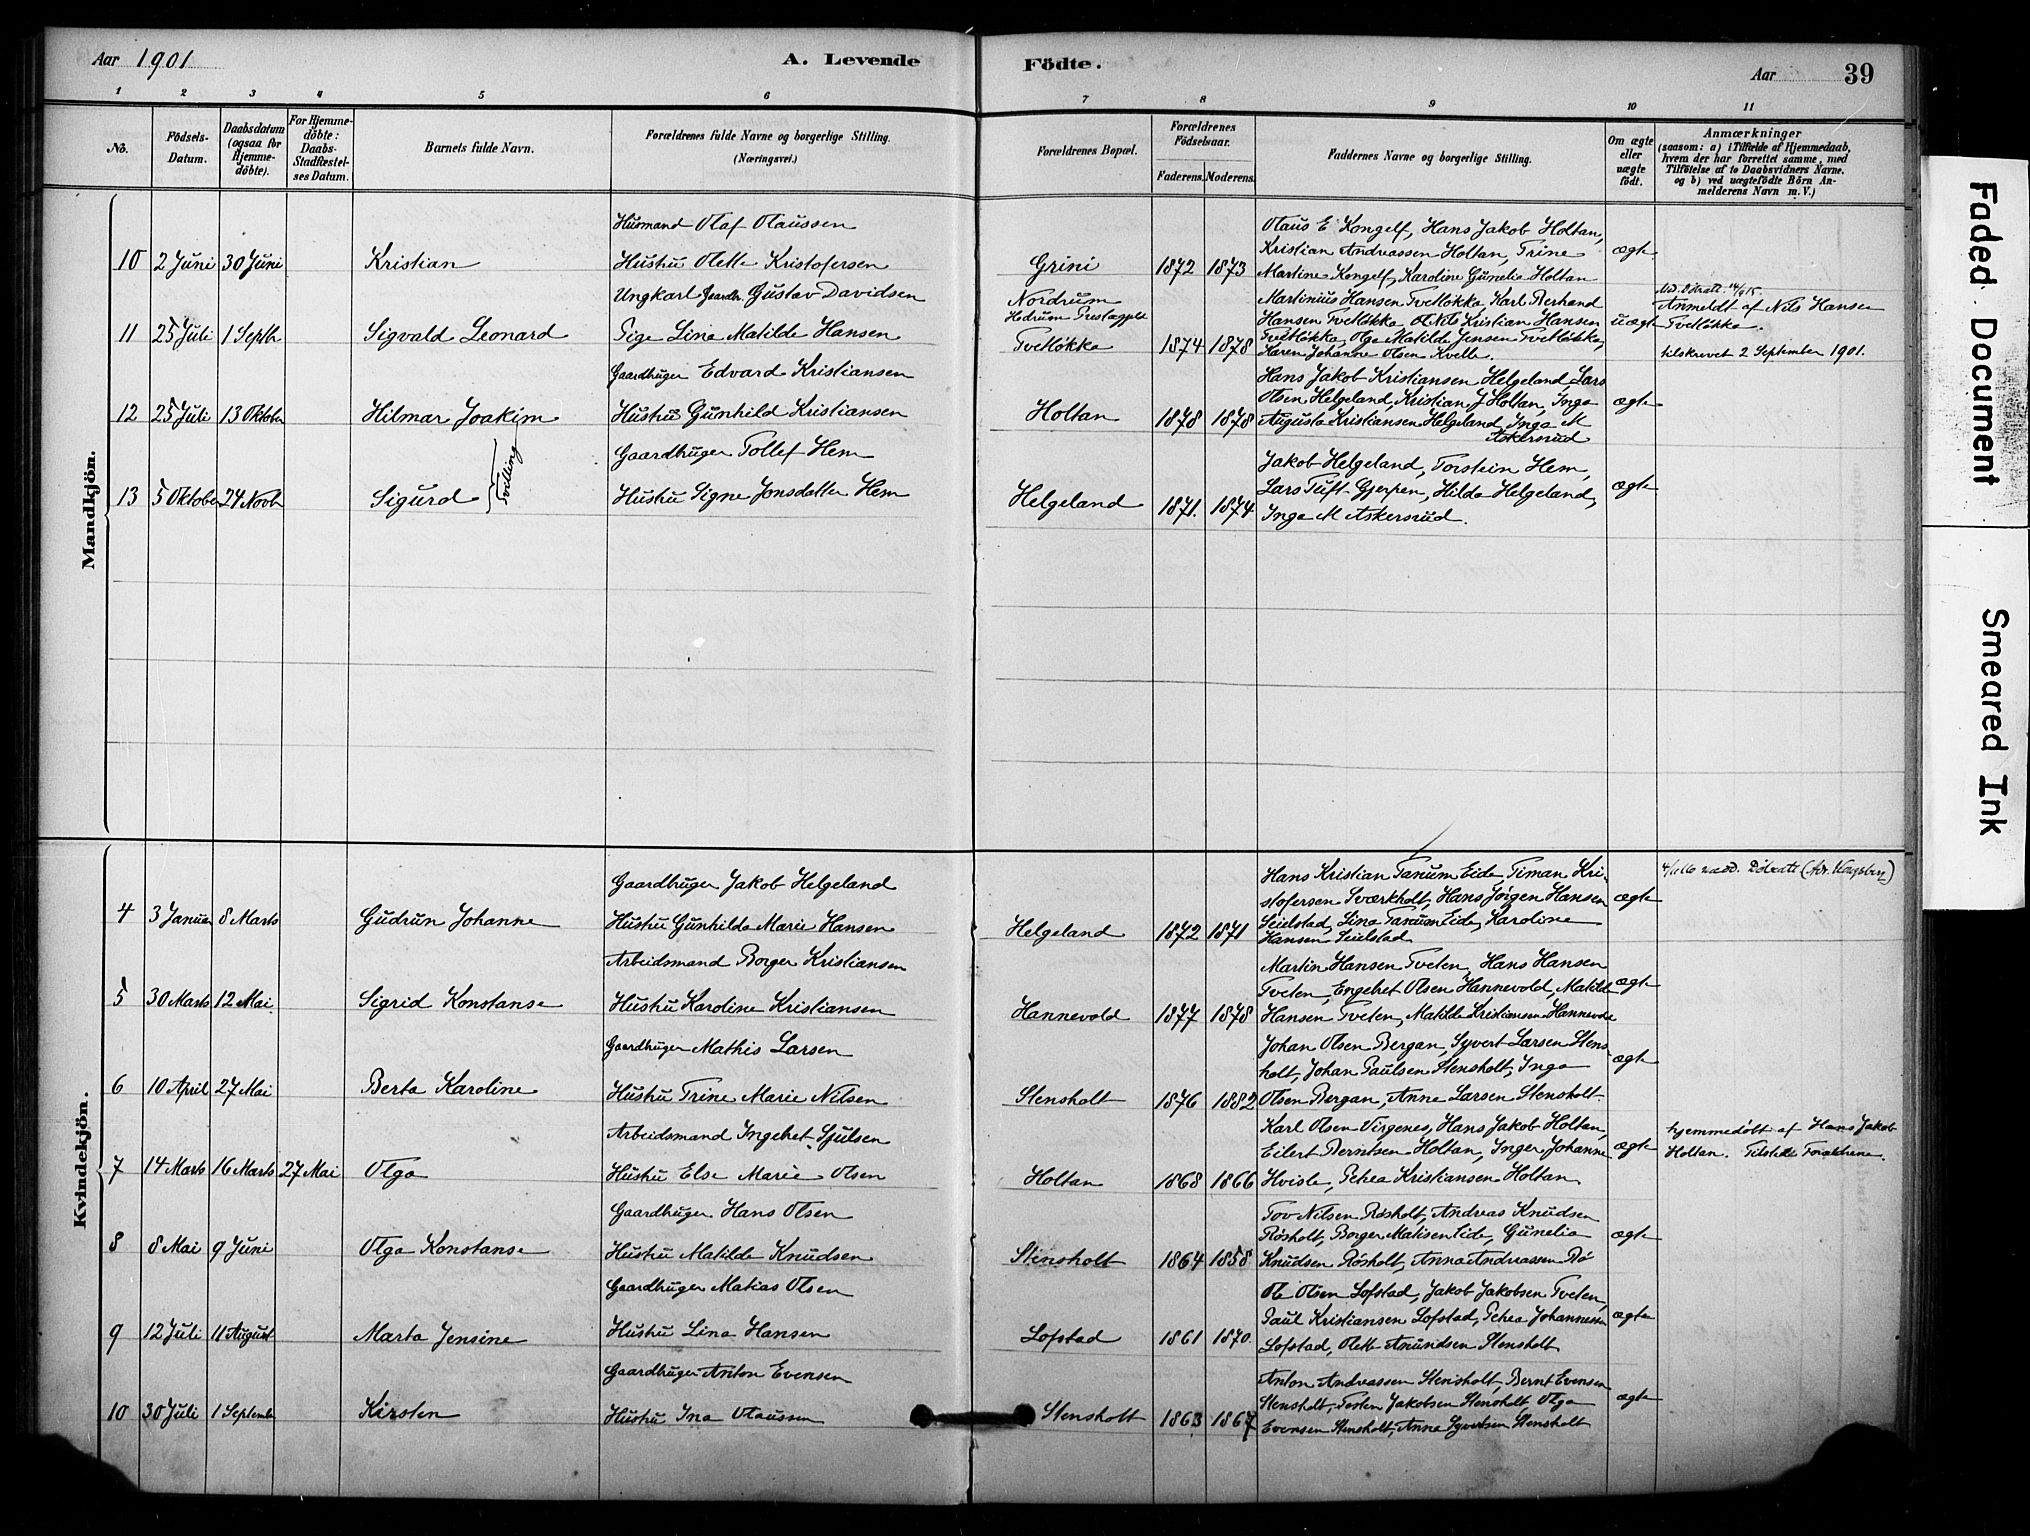 Aar 1901 A. Levende Födte. Aar 39
1 2 3 4 5 6 7 8 9 10 11
No.
Födsels-Datum.
Daabsdatum (ogsaa for Hjemme-döbte).
For Hjemme-döbte: Daabs-Stadfæstel-ses Datum.
Barnets fulde Navn.
Forældrenes fulde Navne og borgerlige Stilling.
(Næringsvei.)
Forældrenes Bopæl.
Forældrenes Födselsaar.
Faderens. Moderens.
Faddernes Navne og borgerlige Stilling.
Om ægte eller uægte födt.
Anmærkninger
(saasom: a) i Tilfælde af Hjemmedaab,
hvem der har forrettet samme, med
Tilföielse af to Daabsvidners Navne.
og b) ved uægtefödte Börn An-
melderens Navn m. V.)
Mandkjön.
Husmand Olaf Olaussen
10 2 Juni 30 Juni Kristian Hustru Olette Kristofersen Grini 1872 1873 ægte
Olaus E Kongelf, Hans Jakob Holtan,
Kristian Andreassen Holtan, Trine
Martine Kongelf, Karoline Gunelia Holtan
Ungkarl Gaardbr. Gustav Davidsen
Nordrum
Hedrum Prestegjeld
11 25 Juli 1 Septbr Sigvald Leonard Pige Lina Matilde Hansen Tvetløkka 1874 1878 uægte
Martinius Hansen Tvetløkka Karl Berhard
Hansen Tvetløkka Nils Kristian Hansen
Tvetløkka, Olga Matilde Jensen Tvetløkka,
Karen Johanne Olsen Kvelle.
Anmeldt af Nils Hansen
Tvetløkka.
tilskrevet 2 September 1901.
Gaardbruger Edvard Kristiansen
12 25 Juli 13 Oktober Hilmar Joakim Hustru Gunhild Kristiansen Holtan 1878 1878 ægte
Hans Jakob Kristiansen Helgeland, Lars
Olsen Helgeland, Kristian J Holtan, Inga
Augusta Kristiansen Helgeland, Inga M
Askersrud
Gaardbruger Tollef Hem
13 5 Oktober 24 Novb Sigurd Tvilling Hustru Signe Jonsdatter Hem Helgeland 1871. 1874 ægte
Jakob Helgeland, Torstein Hem,
Lars Tuft Gjerpen, Hilda Helgeland,
Inga M Askersrud.
Kvindekjön.
Gaardbruger Jakob Helgeland
4 3 Januar 8 Marts Gudrun Johanne Hustru Gunhilda Marie Hansen Helgeland 1872 1871 ægte
Hans Kristian Tanum Eide, Timan Kri-
stofersen Sværkholt, Hans Jørgen Hansen
Seielstad, Lina Tanum Eide, Karoline
Hansen Seielstad
Arbeidsmand Borger Kristiansen
5 30 Marts 12 Mai. Sigrid Konstanse Hustru Karoline Kristiansen Hannevold 1877 1878 ægte
Martin Hansen Tveten, Hans Hansen
Tveten, Engebret Olsen Hannevold, Matilde
Hansen Tveten, Matilde Kristiansen Hannevold
Gaardbruger Mathis Larsen
6 10 April 27 Mai Berta Karoline Hustru Trine Marie Nilsen Stensholt 1876 1882 ægte
Johan Olsen Bergan, Syvert Larsen Stens-
holt, Johan Paulsen Stensholt, Inga
Olsen Bergan, Anne Larsen Stensholt.
Arbeidsmand Ingebret Sjulsen
7 14 Marts 16 Marts 27 Mai Olga Hustru Else Marie Olsen Holtan 1868 1866 ægte
Karl Olsen Virgenes, Hans Jakob Holtan,
Eilert Berntsen Holtan, Inger Johanne
Hvisle, Petrea Kristiansen Holtan.
hjemmedøbt af Hans Jakob
Holtan. Tilstede Forældrene.
Gaardbruger Hans Olsen
8 8 Mai 9 Juni Olga Konstanse Hustru Matilde Knudsen Stensholt 1864 1858 ægte
Tov Nilsen Røsholt, Andreas Knudsen
Røsholt, Borger Matisen Eide, Gunelia
Knudsen Røsholt, Anna Andreassen Rø
Gaardbruger Matias Olsen
9 12 Juli 11 August Marta Jensine Hustru Lina Hansen Lofstad 1861 1870. ægte
Ole Olsen Lofstad, Jakob Jakobsen Tveten,
Paul Kristiansen Lofstad, Petrea Johannessen
Lofstad, Olette Amundsen Stensholt
Gaardbruger Anton Evensen
10 30 Juli 1 September Kirsten Hustru Ina Olaussen Stensholt 1863 1867 ægte
Anton Andreassen Stensholt, Bernt Evensen
Stensholt, Torsten Jakobsen Stensholt, Olga
Evensen Stensholt, Anne Syvertsen Stensholt
Faded Document
Smeared Ink